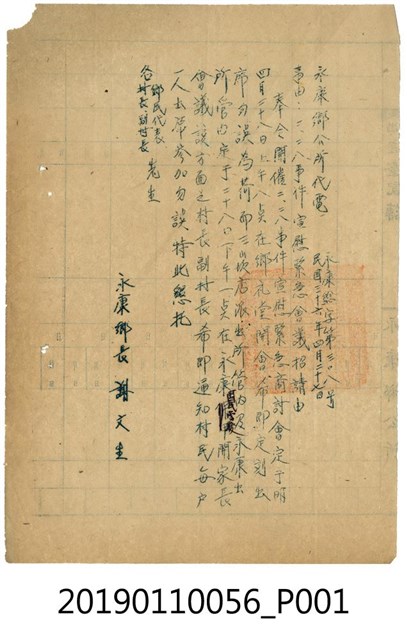 永康鄉公所代電
永康民字第三〇八号
民國三十六年四月二十七日
事由:二、二八事件宣慰緊急會議招請由
奉令開催二、二八事件宣慰緊急商討會定于明
四月二十八日上午八点在鄉礼堂開會希即定刻出
席勿誤為荷即三崁店派出所管內及永康出
所管內定于二十八日下午一点在永康開家長
會議該方面之村長副村長希即通知村民每戶
一人出席參加勿誤特此懇托
鄉民代表
各村長、副村長 先生
永康鄉長 謝文生
20190110056_P001